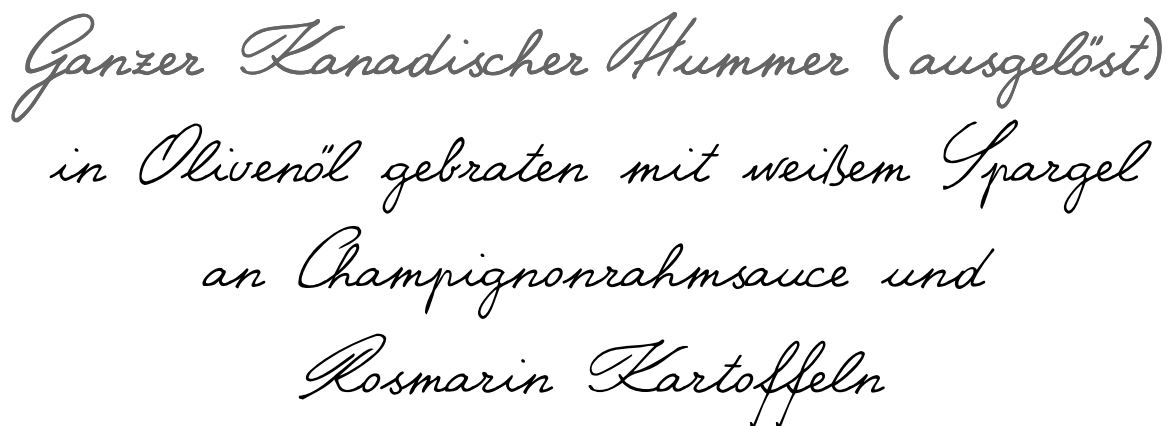 Ganzer Kanadischer Hummer (ausgelöst)
in Olivenöl gebraten mit weißem Spargel
an Champignonrahmsauce und
Rosmarin Kartoffeln